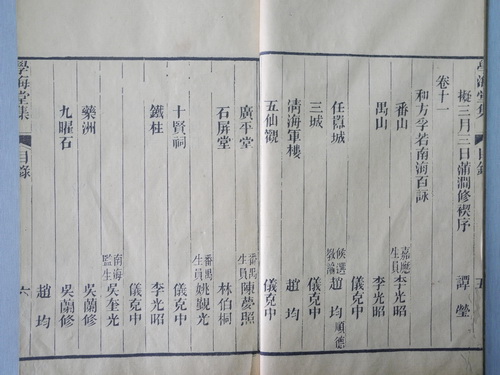 學海堂集 目錄 五
擬三月三日蒲澗修禊序 譚瑩
卷十一
和方孚若南海百詠
番山 嘉應生員李光昭
禺山 李光昭
儀克中
任囂城 候選教諭趙均順德
三城 儀克中
清海軍樓 趙均
五仙觀 儀克中
廣平堂 番禺生員陳夢照
石屏堂 林伯桐
番禺生員姚覲光
十賢祠 儀克中
鐵柱 李光昭
儀克中
南海監生吳奎光
藥洲 吳蘭修
九曜石 吳蘭修
趙均
學海堂集 目錄 六